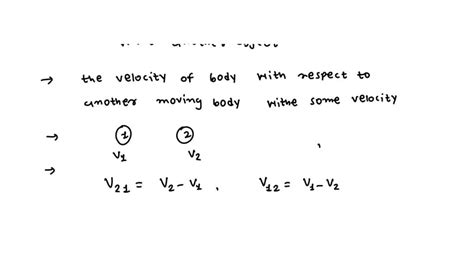 → the velocity of body with respect to
another moving body withe some velocity
→ 1 2
V1 V2
→
V21 = V2 - V1 , V12 = V1 - V2